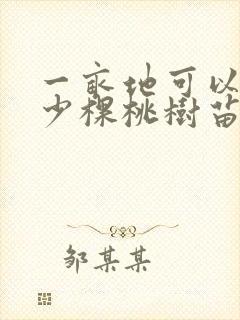 一亩地可以
少棵桃樹苗
邹某某